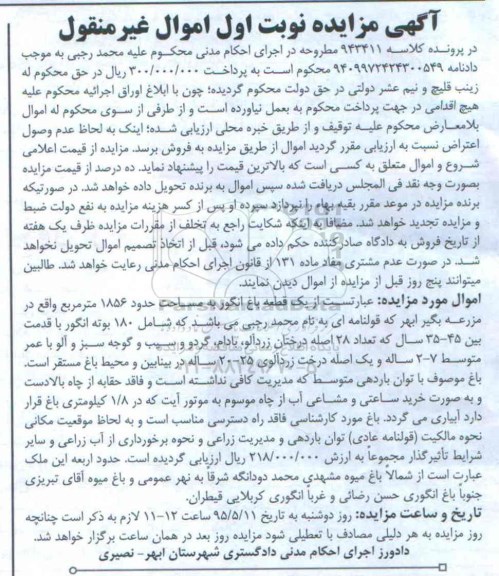 آگهی مزایده نوبت اول اموال غیرمنقول
در پرونده کلاسه ۹۴۳۴۱۱ مطروحه در اجرای احکام مدنی محکوم علیه محمد رجبی به موجب
دادنامه ۹۴۰۹۹۷۲۴۲۴۳۰۰۵۴۹ محکوم است به پرداخت ۳۰۰/۰۰۰/۰۰۰ ریال در حق محکوم له
زینب قلیچ و نیم عشر دولتی در حق دولت محکوم گردیده؛ چون با ابلاغ اوراق اجرائیه محکوم علیه
هیچ اقدامی در جهت پرداخت محکوم به بعمل نیاورده است و از طرفی از سوی محکوم له اموال
بلامعارض محکوم علیه توقیف و از طریق خبره محلی ارزیابی شده؛ اینک به لحاظ عدم وصول
اعتراض نسبت به ارزیابی مقرر گردید اموال از طریق مزایده به فروش برسد. مزایده از قیمت اعلامی
شروع و اموال متعلق به کسی است که بالاترین قیمت را پیشنهاد نماید. ده درصد از قیمت مزایده
بصورت وجه نقد فی المجلس دریافت شده سپس اموال به برنده تحویل داده خواهد شد. در صورتیکه
برنده مزایده در موعد مقرر بقیه بهاء را نپردازد سپرده او پس از کسر هزینه مزایده به نفع دولت ضبط
و مزایده تجدید خواهد شد. مضافا به اینکه شکایت راجع به تخلف از مقررات مزایده ظرف یک هفته
از تاریخ فروش به دادگاه صادرکننده حکم داده می شود، قبل از اتخاذ تصمیم اموال تحویل نخواهد
شد. در صورت عدم مشتری مفاد ماده ۱۳۱ از قانون اجرای احکام مدنی رعایت خواهد شد. طالبین
میتوانند پنج روز قبل از مزایده از اموال دیدن نمایند.
اموال مورد مزایده: عبارتست از یک قطعه باغ انگور به مساحت حدود ۱۸۵۶ مترمربع واقع در
مزرعه بگیر ابهر که قولنامه ای به نام محمد رجبی می باشد که شامل ۱۸۰ بوته انگور با قدمت
بین ۴۵-۳۵ سال که تعداد ۲۸ اصله درختان زردآلو، بادام، گردو و سیب و گوجه سبز و آلو با عمر
متوسط ۷-۲ ساله و یک اصله درخت زردآلوی ۲۵-۲۰ ساله در بینابین و محیط باغ مستقر است.
باغ موصوف با توان باردهی متوسط که مدیریت کافی نداشته است و فاقد حقابه از چاه بالادست
و به صورت خرید ساعتی و مشاعی آب از چاه موسوم به موتور آیت که در ۱/۸ کیلومتری باغ قرار
دارد آبیاری می گردد. باغ مورد کارشناسی فاقد راه دسترسی مناسب است و به لحاظ موقعیت مکانی
نحوه مالکیت (قولنامه عادی) توان باردهی و مدیریت زراعی و نحوه برخورداری از آب زراعی و سایر
شرایط تأثیرگذار مجموعاً به ارزش ۲۱۸/۰۰۰/۰۰۰ ریال ارزیابی گردیده است. حدود اربعه این ملک
عبارت است از شمالاً باغ میوه مشهدی محمد دودانگه شرقاً به نهر عمومی و باغ میوه آقای تبریزی
جنوباً باغ انگوری حسن رضائی و غرباً انگوری کربلایی قیطران.
تاریخ و ساعت مزایده: روز دوشنبه به تاریخ ۹۵/۵/۱۱ ساعت ۱۲-۱۱ لازم به ذکر است چنانچه
روز مزایده به هر دلیلی مصادف با تعطیلی شود مزایده روز بعد در همان ساعت برگزار خواهد شد.
دادورز اجرای احکام مدنی دادگستری شهرستان ابهر- نصیری